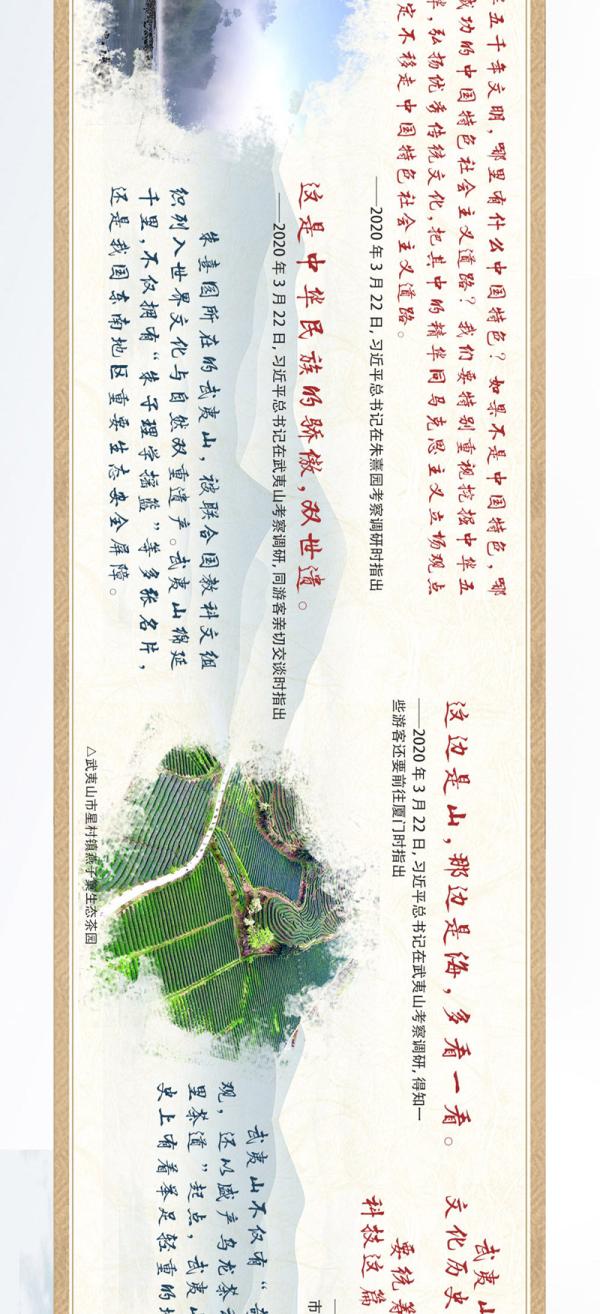 五千年文明,哪里有什么中国特色?如果不是中国特色,哪
成功的中国特色社会主义道路?我们要特别重视挖掘中华五
,弘扬优秀传统文化,把其中的精华同马克思主义立场观点
定不移走中国特色社会主义道路。
——2020年3月22日,习近平总书记在朱熹园考察调研时指出
这是中华民族的骄傲,双世遗。
——2020年3月22日,习近平总书记在武夷山考察调研,同游客亲切交谈时指出
朱熹园所在的武夷山,被联合国教科文组
织列入世界文化与自然双重遗产。武夷山绵延
千里,不仅拥有“朱子理学摇篮”等多张名片,
还是我国东南地区重要生态安全屏障。
这边是山,那边是海,多看一看。
——2020年3月22日,习近平总书记在武夷山考察调研,得知一
些游客还要前往厦门时指出
△武夷山市星村镇燕子窠生态茶园
武夷山不仅有“
观,还以盛产乌龙茶
里茶道”起点,武夷
史上有着举足轻重的
武夷山
文化历史
要统筹
科技这篇
市